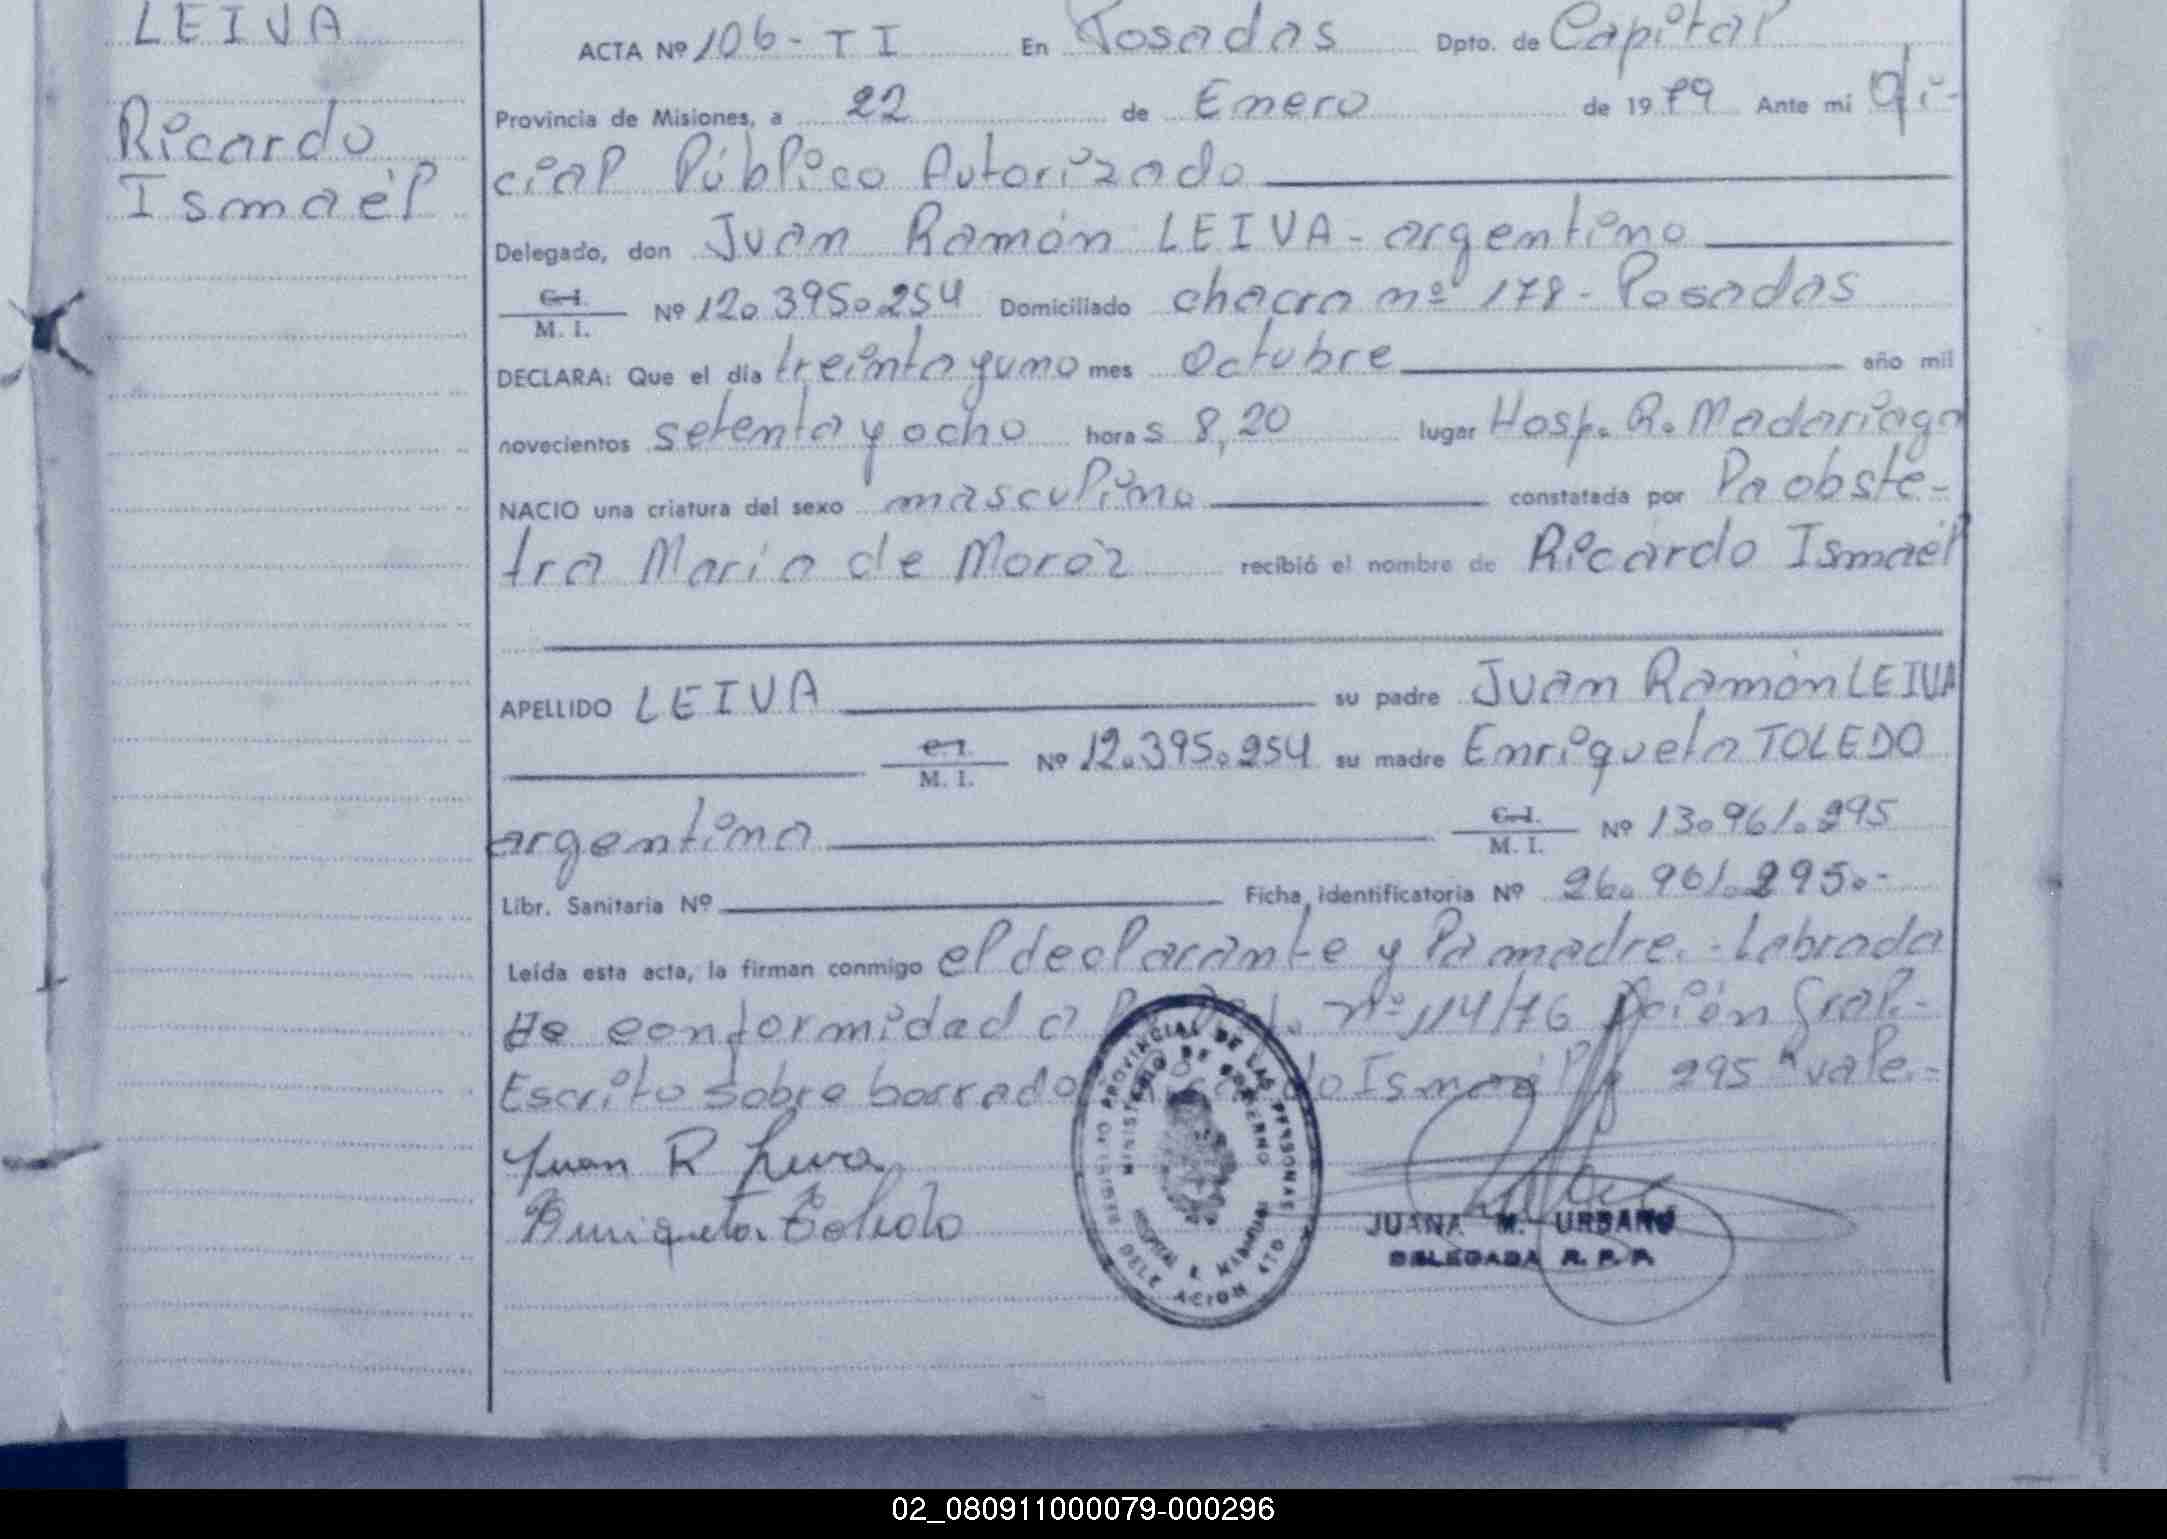 LEIVA
Ricardo
Ismaél
ACTA Nº 106 - T I En Posadas Dpto. de Capital
Provincia de Misiones, a 22 de Enero de 1979 Ante mi Ofi-
cial Público Autorizado
Delegado, don Juan Ramón LEIVA - argentino
C.I. M. I. Nº 12.395.254 Domiciliado chacra nº 178 - Posadas
DECLARA: Que el día treinta y uno mes Octubre año mil
novecientos setenta y ocho horas 8,20 lugar Hosp. R. Madariaga
NACIO una criatura del sexo masculino constatada por la obste-
tra María de Moroz recibió el nombre de Ricardo Ismaél
APELLIDO LEIVA su padre Juan Ramón LEIVA
C.I. M. I. Nº 12.395.254 su madre Enriqueta TOLEDO
argentina C.I. M. I. Nº 13.961.295
Libr. Sanitaria Nº Ficha identificatoria Nº 26.961.295.-
Leída esta acta, la firman conmigo el declarante y la madre.- Labrada
de conformidad a nº 114/76 Gral.-
Escrito sobre borrado Ismaél 295 "vale.-
Juan R Leiva
Enriqueta Toledo
PROVINCIAL DE LAS PERSONAS
MINISTERIO DE GOBIERNO
HOSPITAL R. MADARIAGA
JUANA M. URBANO
DELEGADA R. P. P.
02_080911000079-000296